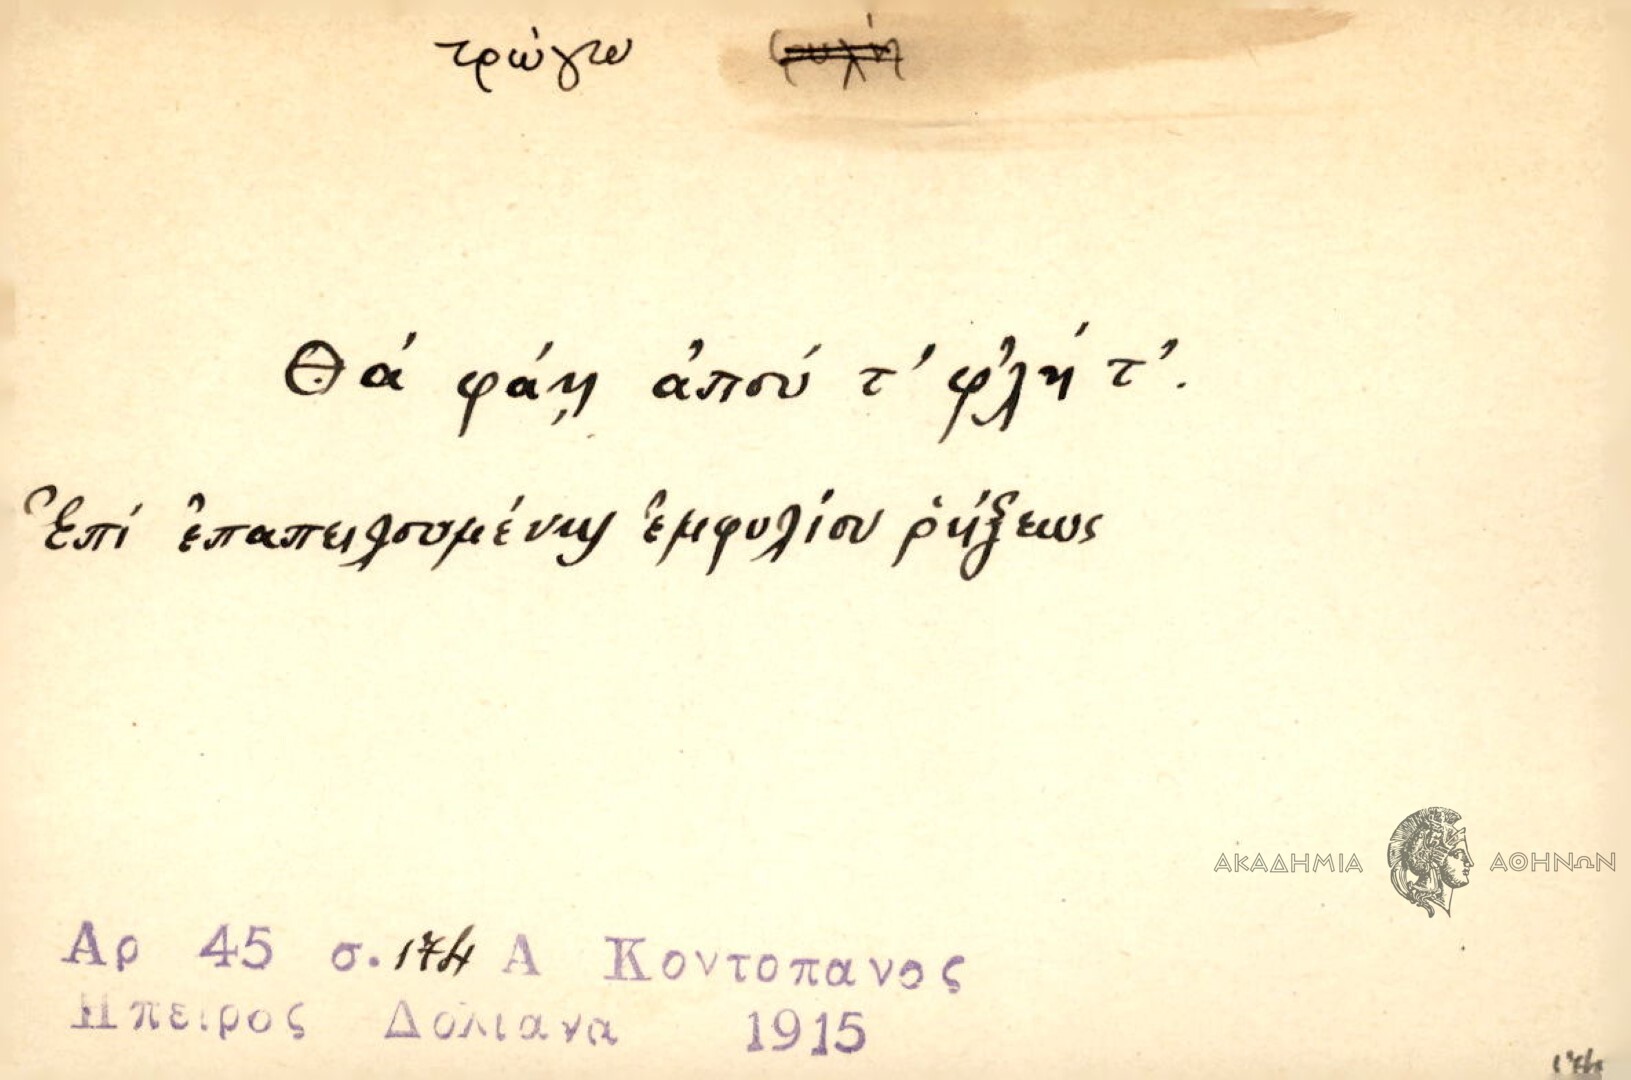 τρώγω φυλή
Θά φάῃ ἀπού τ' φ'λή τ'.
Ἐπί ἐπαπειλουμένης ἐμφυλίου ῥήξεως
ΑΚΑΔΗΜΙΑ ΑΘΗΝΩΝ
Αρ 45 σ. 174 Α Κοντοπανος
Ηπειρος Δολιανα 1915
174